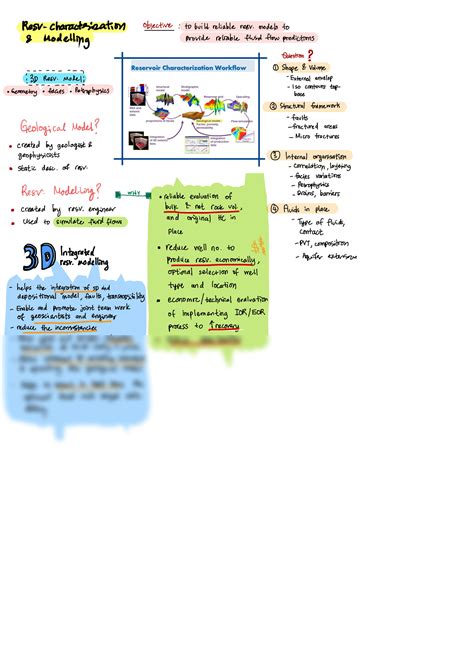 Resv. Characterization
& Modelling
Objective : to build reliable resv. models to
provide reliable fluid flow predictions
3D Resv. Model
• Geometry • facies • Petrophysics
Geological Model?
• created by geologist &
geophysicists
• Static desc. of resv.
Resv. Modelling?
• created by resv. engineer
• Used to simulate fluid flows
Reservoir Characterization Workflow
Question?
① Shape & Volume
- External envelop
- Iso contours top-
base
② Structural framework
- faults
- fractured areas
- Micro fractures
③ Internal organisation
- Correlation, layering
- facies variations
- Petrophysics
- Drains, barriers
④ Fluids in place
- Type of fluids,
contact
- PVT, compositions
- Aquifer extension
WHY
• reliable evaluation of
bulk & net rock vol.
and original HC in
place
• reduce well no. to $$
produce resv. economically,
optional selection of well
type and location
• economic/technical evaluation
of implementing IOR/EOR
process to ↑ recovery
3D Integrated
resv. modelling
- helps the integration of 3D and
depositional model, faults, transmissibility
- Enable and promote joint team work
of geoscientists and engineer
- reduce the inconsistencies